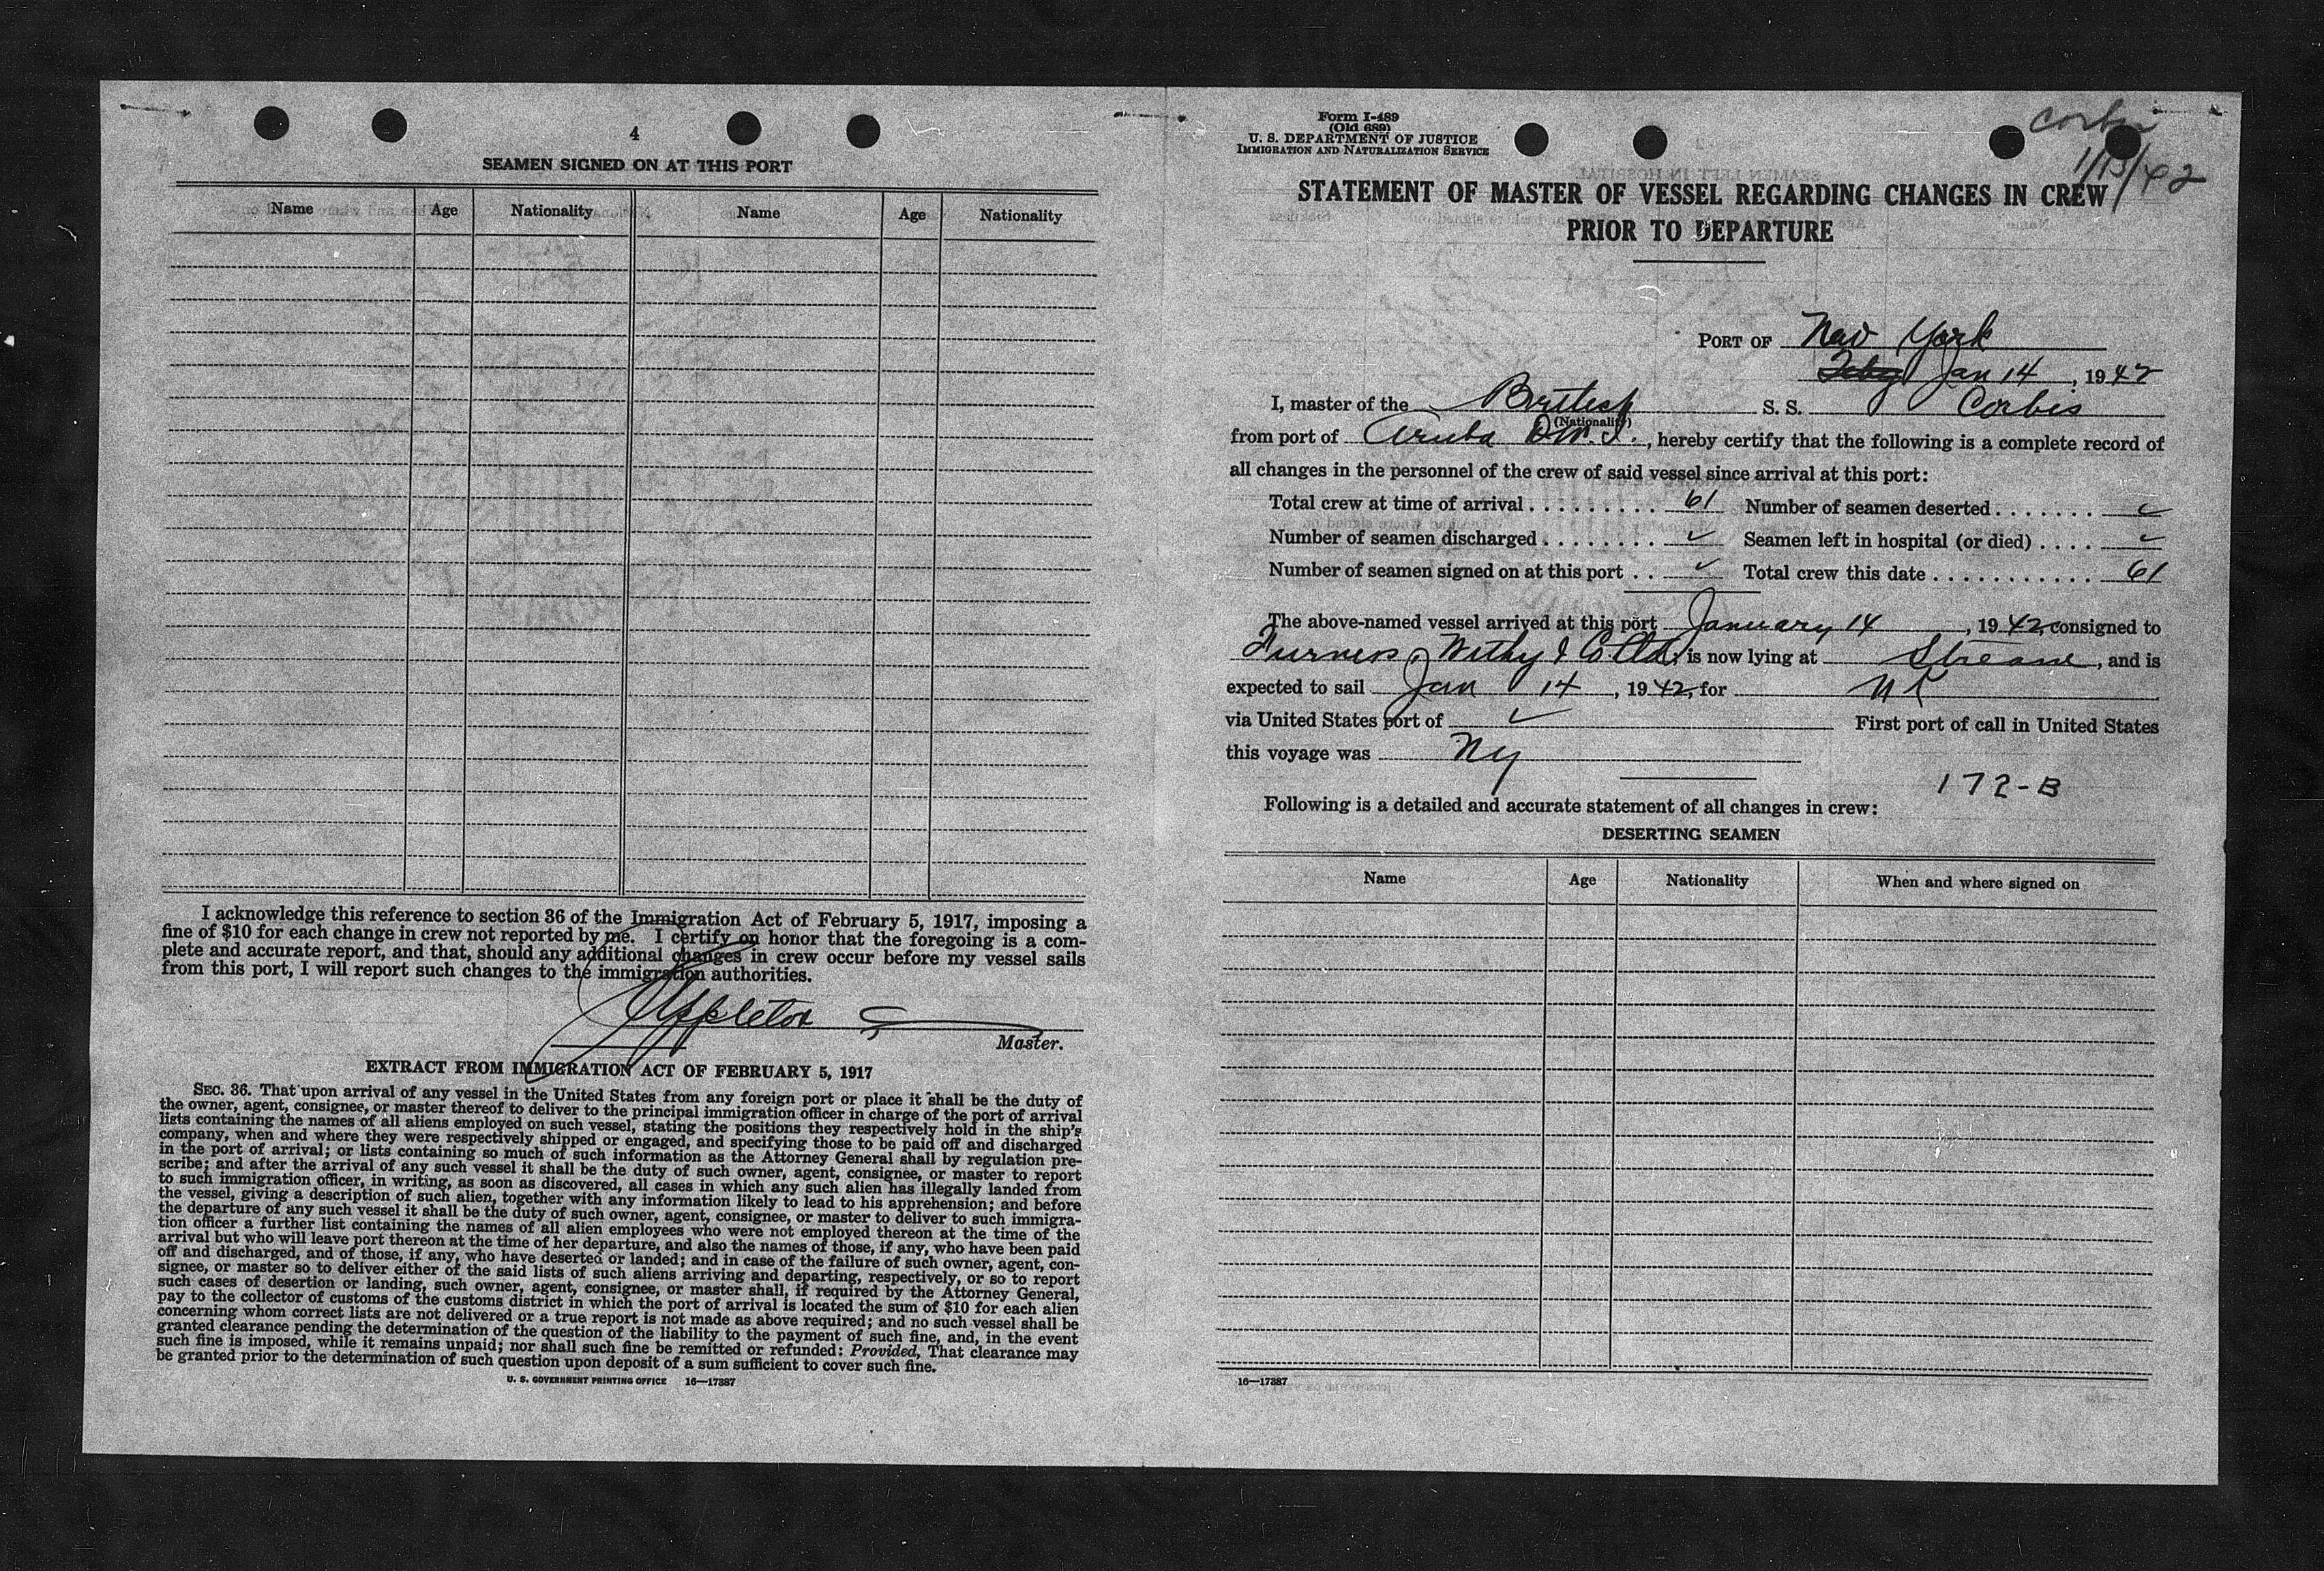 4
SEAMEN SIGNED ON AT THIS PORT
Name Age Nationality Name Age Nationality
I acknowledge this reference to section 36 of the Immigration Act of February 5, 1917, imposing a
fine of $10 for each change in crew not reported by me. I certify on honor that the foregoing is a com-
plete and accurate report, and that, should any additional changes in crew occur before my vessel sails
from this port, I will report such changes to the immigration authorities.
Appleton
Master.
EXTRACT FROM IMMIGRATION ACT OF FEBRUARY 5, 1917
SEC. 36. That upon arrival of any vessel in the United States from any foreign port or place it shall be the duty of
the owner, agent, consignee, or master thereof to deliver to the principal immigration officer in charge of the port of arrival
lists containing the names of all aliens employed on such vessel, stating the positions they respectively hold in the ship's
company, when and where they were respectively shipped or engaged, and specifying those to be paid off and discharged
in the port of arrival; or lists containing so much of such information as the Attorney General shall by regulation pre-
scribe; and after the arrival of any such vessel it shall be the duty of such owner, agent, consignee, or master to report
to such immigration officer, in writing, as soon as discovered, all cases in which any such alien has illegally landed from
the vessel, giving a description of such alien, together with any information likely to lead to his apprehension; and before
the departure of any such vessel it shall be the duty of such owner, agent, consignee, or master to deliver to such immigra-
tion officer a further list containing the names of all alien employees who were not employed thereon at the time of the
arrival but who will leave port thereon at the time of her departure, and also the names of those, if any, who have been paid
off and discharged, and of those, if any, who have deserted or landed; and in case of the failure of such owner, agent, con-
signee, or master so to deliver either of the said lists of such aliens arriving and departing, respectively, or so to report
such cases of desertion or landing, such owner, agent, consignee, or master shall, if required by the Attorney General,
pay to the collector of customs of the customs district in which the port of arrival is located the sum of $10 for each alien
concerning whom correct lists are not delivered or a true report is not made as above required; and no such vessel shall be
granted clearance pending the determination of the question of the liability to the payment of such fine, and, in the event
such fine is imposed, while it remains unpaid; nor shall such fine be remitted or refunded: Provided, That clearance may
be granted prior to the determination of such question upon deposit of a sum sufficient to cover such fine.
U. S. GOVERNMENT PRINTING OFFICE 16—17387
Form I-489
(Old 689)
U. S. DEPARTMENT OF JUSTICE
IMMIGRATION AND NATURALIZATION SERVICE
Corbis
1/15/42
STATEMENT OF MASTER OF VESSEL REGARDING CHANGES IN CREW
PRIOR TO DEPARTURE
PORT OF New York
Jan 14, 1942
I, master of the British S. S. Corbis
(Nationality)
from port of Aruba D.W.I., hereby certify that the following is a complete record of
all changes in the personnel of the crew of said vessel since arrival at this port:
Total crew at time of arrival 61 Number of seamen deserted ✓
Number of seamen discharged ✓ Seamen left in hospital (or died) ✓
Number of seamen signed on at this port ✓ Total crew this date 61
The above-named vessel arrived at this port January 14, 1942, consigned to
Furness, Withy & Co Ltd, is now lying at Stream, and is
expected to sail Jan 14, 1942, for UK
via United States port of ✓ First port of call in United States
this voyage was NY
172-B
Following is a detailed and accurate statement of all changes in crew:
DESERTING SEAMEN
Name Age Nationality When and where signed on
16—17387